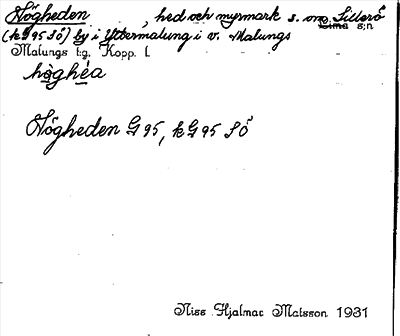 Högheden, hed och myrmark s. om Lillerö
Lima s:n
(kG 95 SÖ) by i Yttermalung i v. Malungs
Malungs t:g. Kopp. l.
hö̀ghéa
Högheden G 95, kG 95 SÖ
Niss Hjalmar Matsson 1931